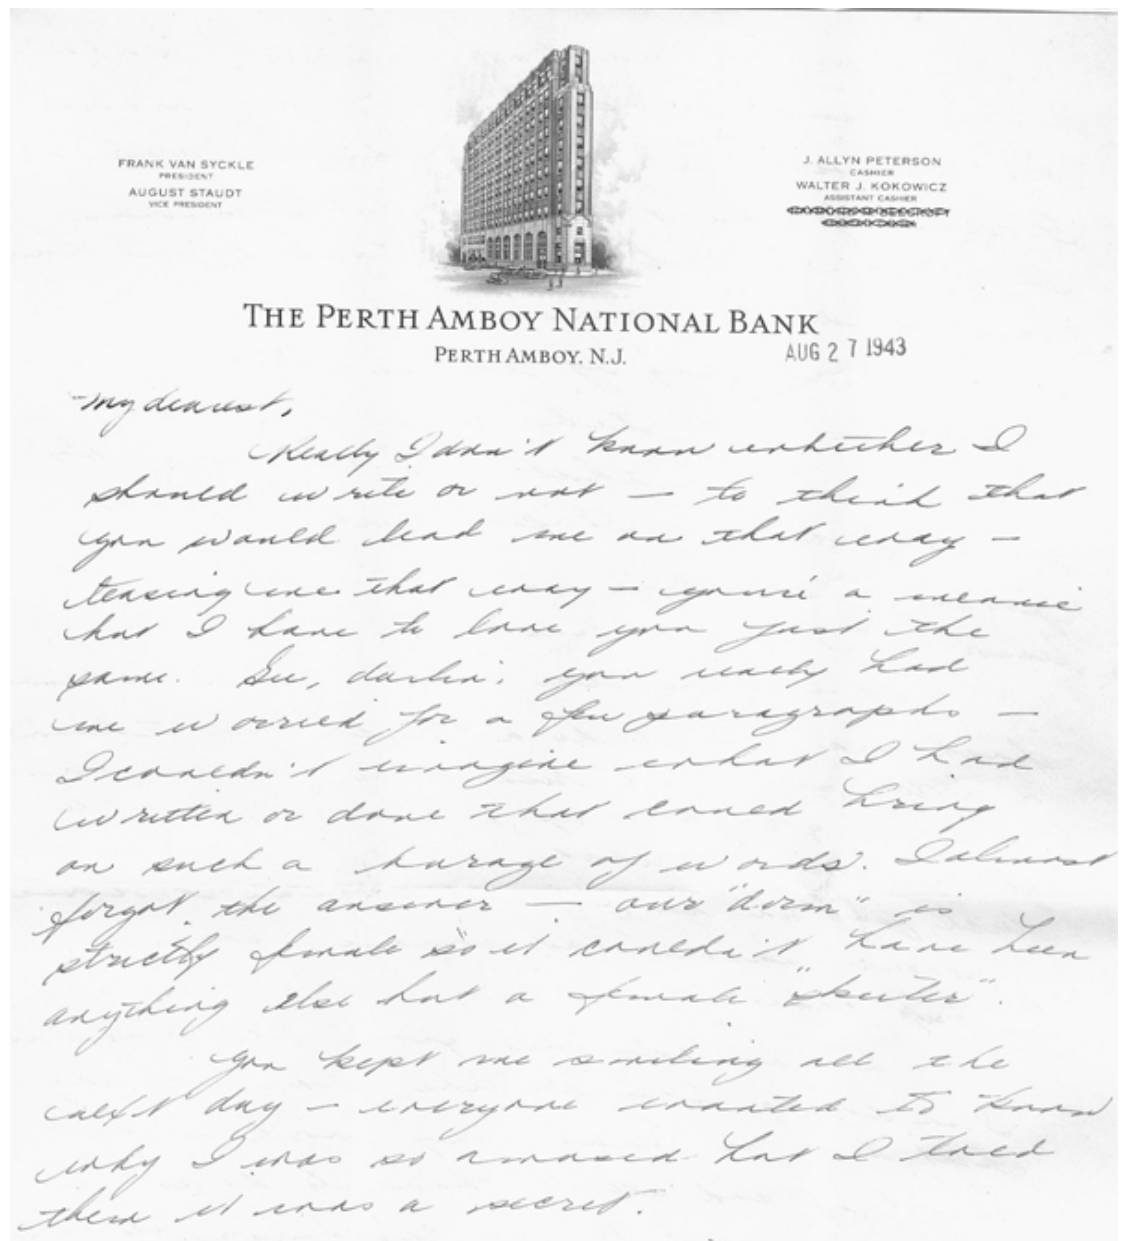 FRANK VAN SYCKLE
PRESIDENT
AUGUST STAUDT
VICE PRESIDENT
J. ALLYN PETERSON
CASHIER
WALTER J. KOKOWICZ
ASSISTANT CASHIER
THE PERTH AMBOY NATIONAL BANK
PERTH AMBOY, N.J.
AUG 27 1943
My dearest,
Really I don't know whether I
should write or not — to think that
you would lead me on that way —
teasing me that way — you're a meanie
but I have to love you just the
same. Gee, darlin', you really had
me worried for a few paragraphs —
I couldn't imagine what I had
written or done that could bring
on such a barage of words. I almost
forgot the answer — our "dorm" is
strictly female so it couldn't have been
anything else but a female "skeeter".
You kept me smiling all the
next day — everyone wanted to know
why I was so amused but I told
them it was a secret.